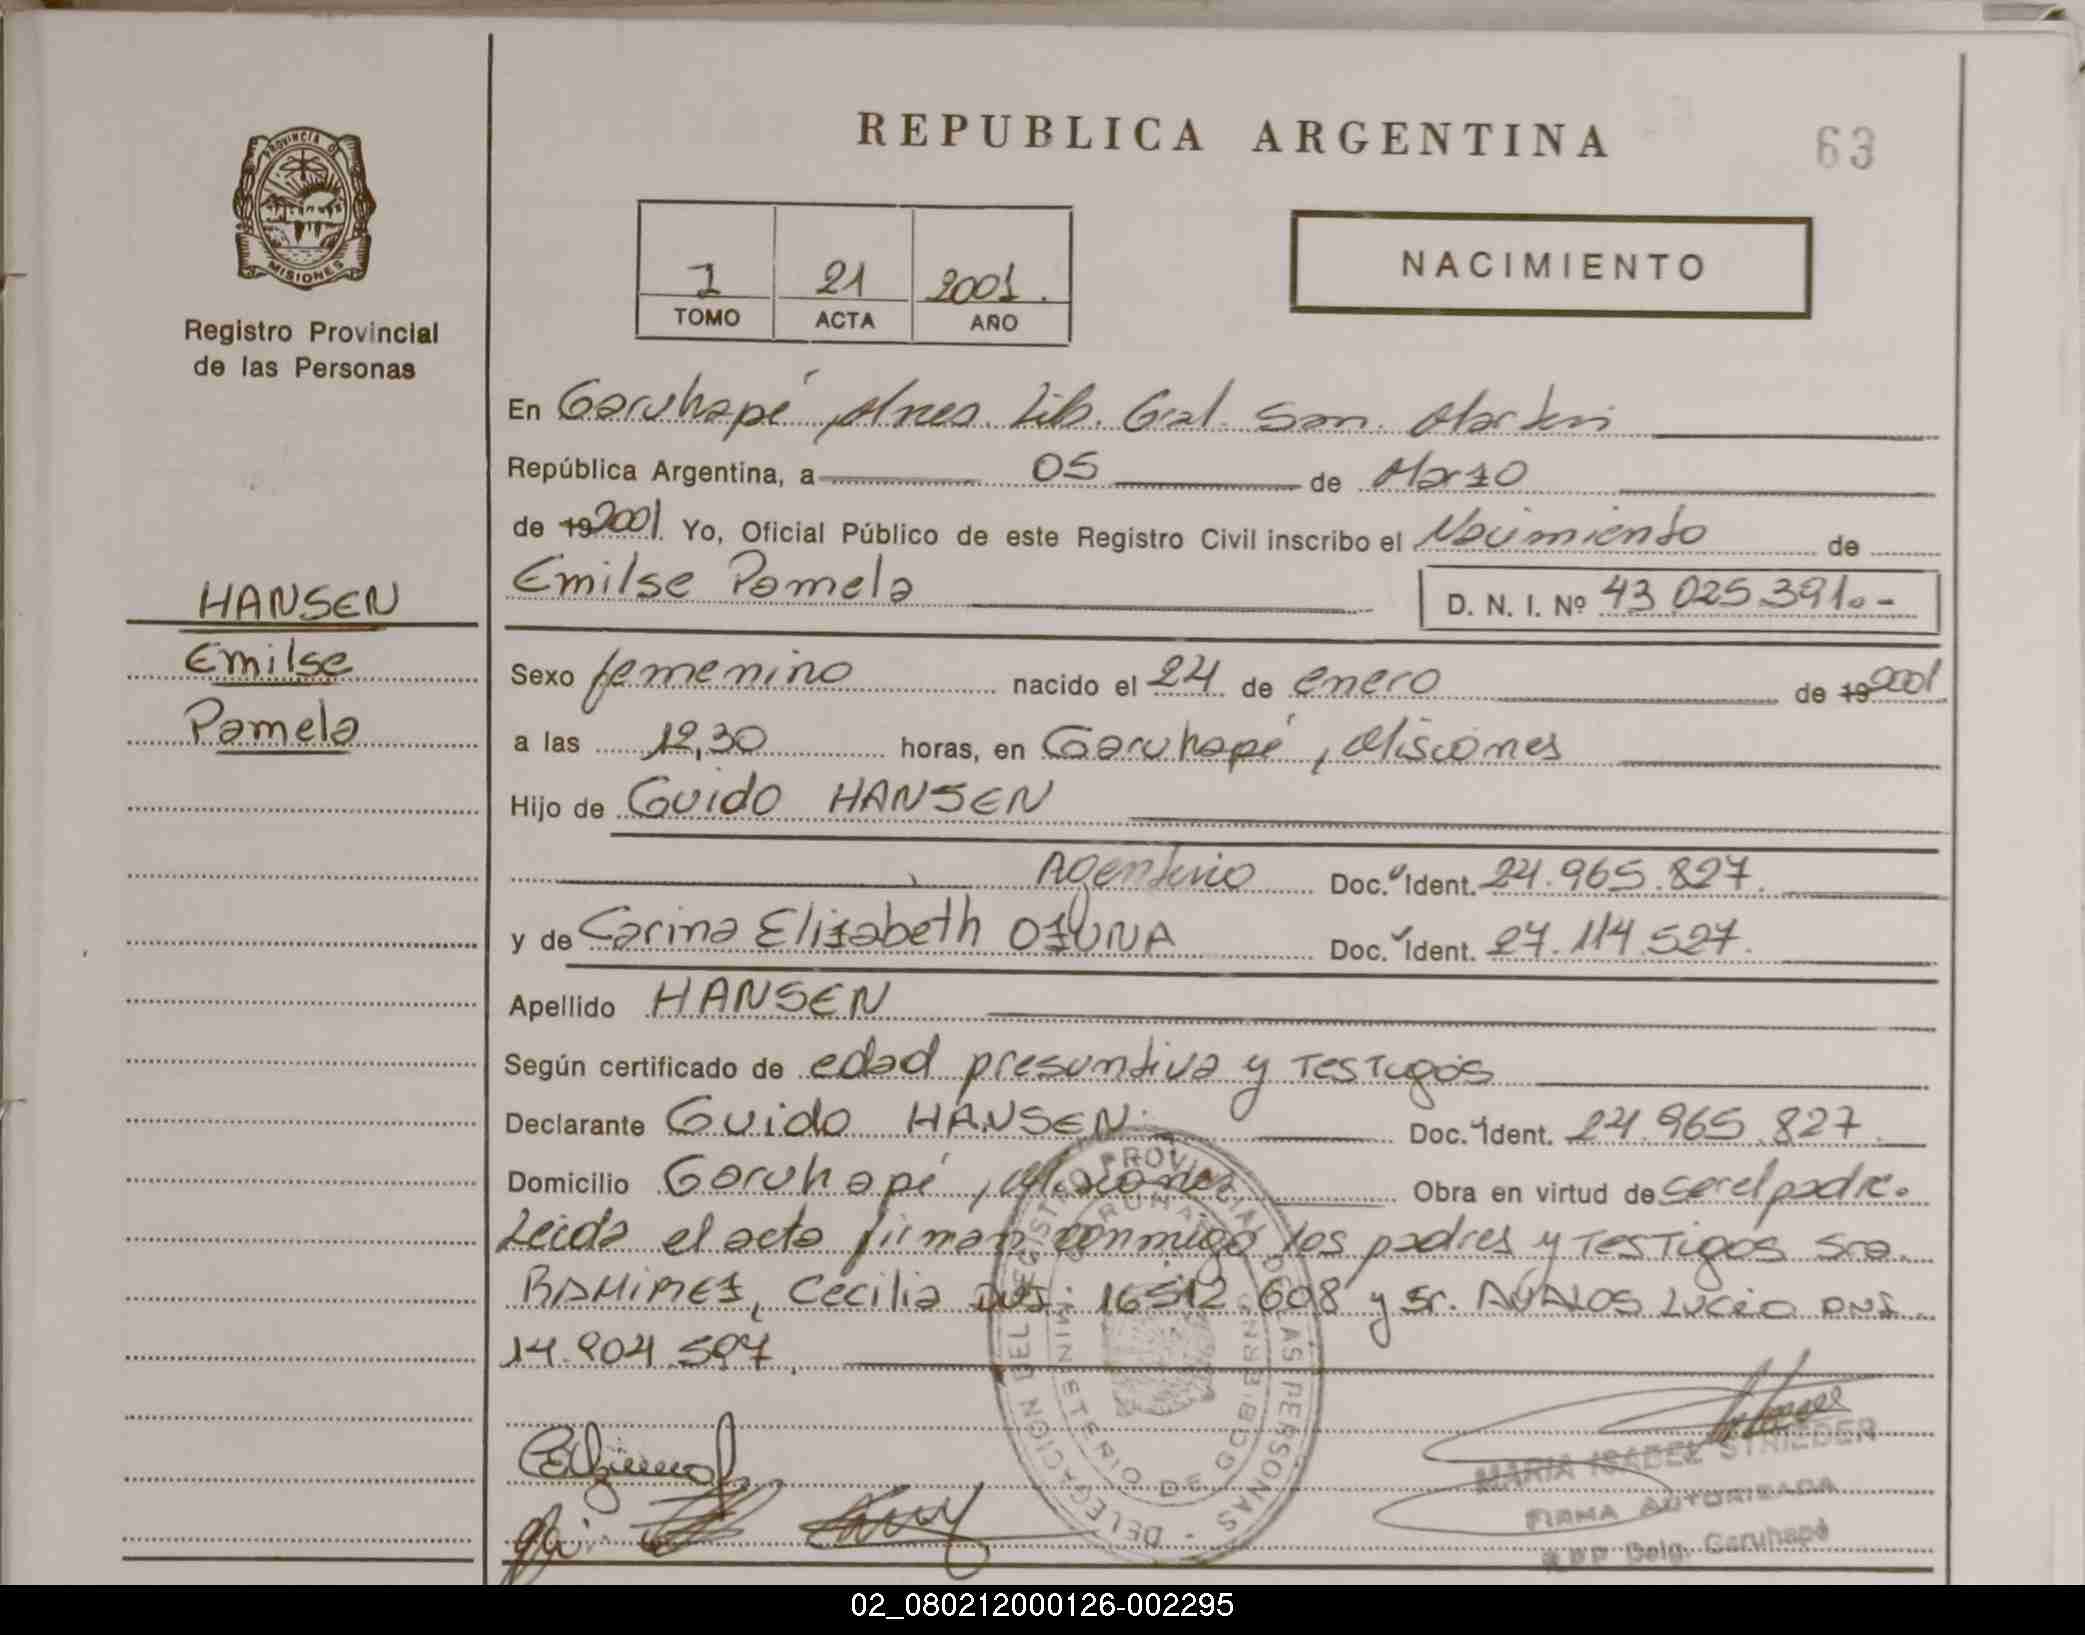 REPUBLICA ARGENTINA
63
PROVINCIA D
MISIONES
Registro Provincial
de las Personas
1 21 2001.
TOMO ACTA AÑO
NACIMIENTO
En Garuhapé, Mnes. Lib. Gral. San. Martin
República Argentina, a 05 de Marzo
de 19 2001. Yo, Oficial Público de este Registro Civil inscribo el Nacimiento de
Emilse Pamela D. N. I. Nº 43.025.391.-
HANSEN
Emilse
Pamela
Sexo femenino nacido el 24 de enero de 19 2001
a las 12,30 horas, en Garuhapé, Misiones
Hijo de Guido HANSEN
Agentino Doc. Ident. 24.965.827.
y de Carina Elizabeth OZUNA Doc. Ident. 27.114.527.
Apellido HANSEN
Según certificado de edad presuntiva y Testigos
Declarante Guido HANSEN. Doc. Ident. 24.965.827.
Domicilio Garuhapé, Misiones Obra en virtud de ser el padre.
Leida el acta firman conmigo los padres y Testigos Sra.
RAMIREZ, Cecilia DNI: 16.512.608 y Sr. AVALOS Lucio DNI.
14.904.597.
DELEGACION DEL REGISTRO PROVINCIAL DE LAS PERSONAS -
MINISTERIO DE GOBIERNO
MARIA ISABEL STRIEDER
FIRMA AUTORIZADA
R P P Delg. Garuhapé
02_080212000126-002295